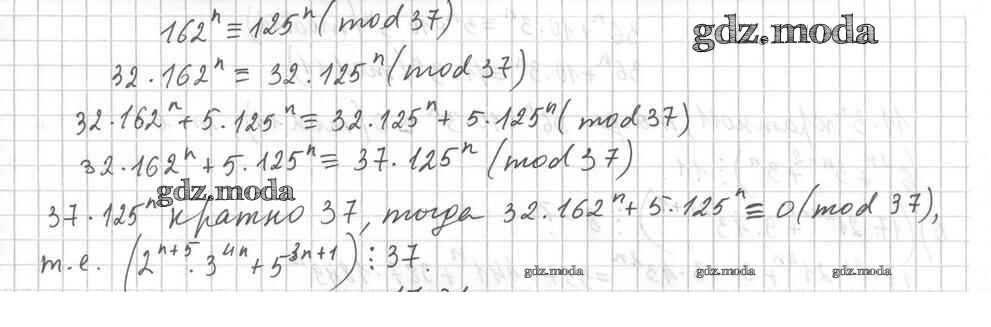 162ⁿ ≡ 125ⁿ (mod 37)
gdz.moda
32·162ⁿ ≡ 32·125ⁿ (mod 37)
32·162ⁿ + 5·125ⁿ ≡ 32·125ⁿ + 5·125ⁿ (mod 37)
32·162ⁿ + 5·125ⁿ ≡ 37·125ⁿ (mod 37)
gdz.moda
37·125ⁿ кратно 37, тогда 32·162ⁿ + 5·125ⁿ ≡ 0 (mod 37),
т.е. (2ⁿ⁺⁵·3⁴ⁿ + 5³ⁿ⁺¹) ⋮ 37.
gdz.moda gdz.moda gdz.moda